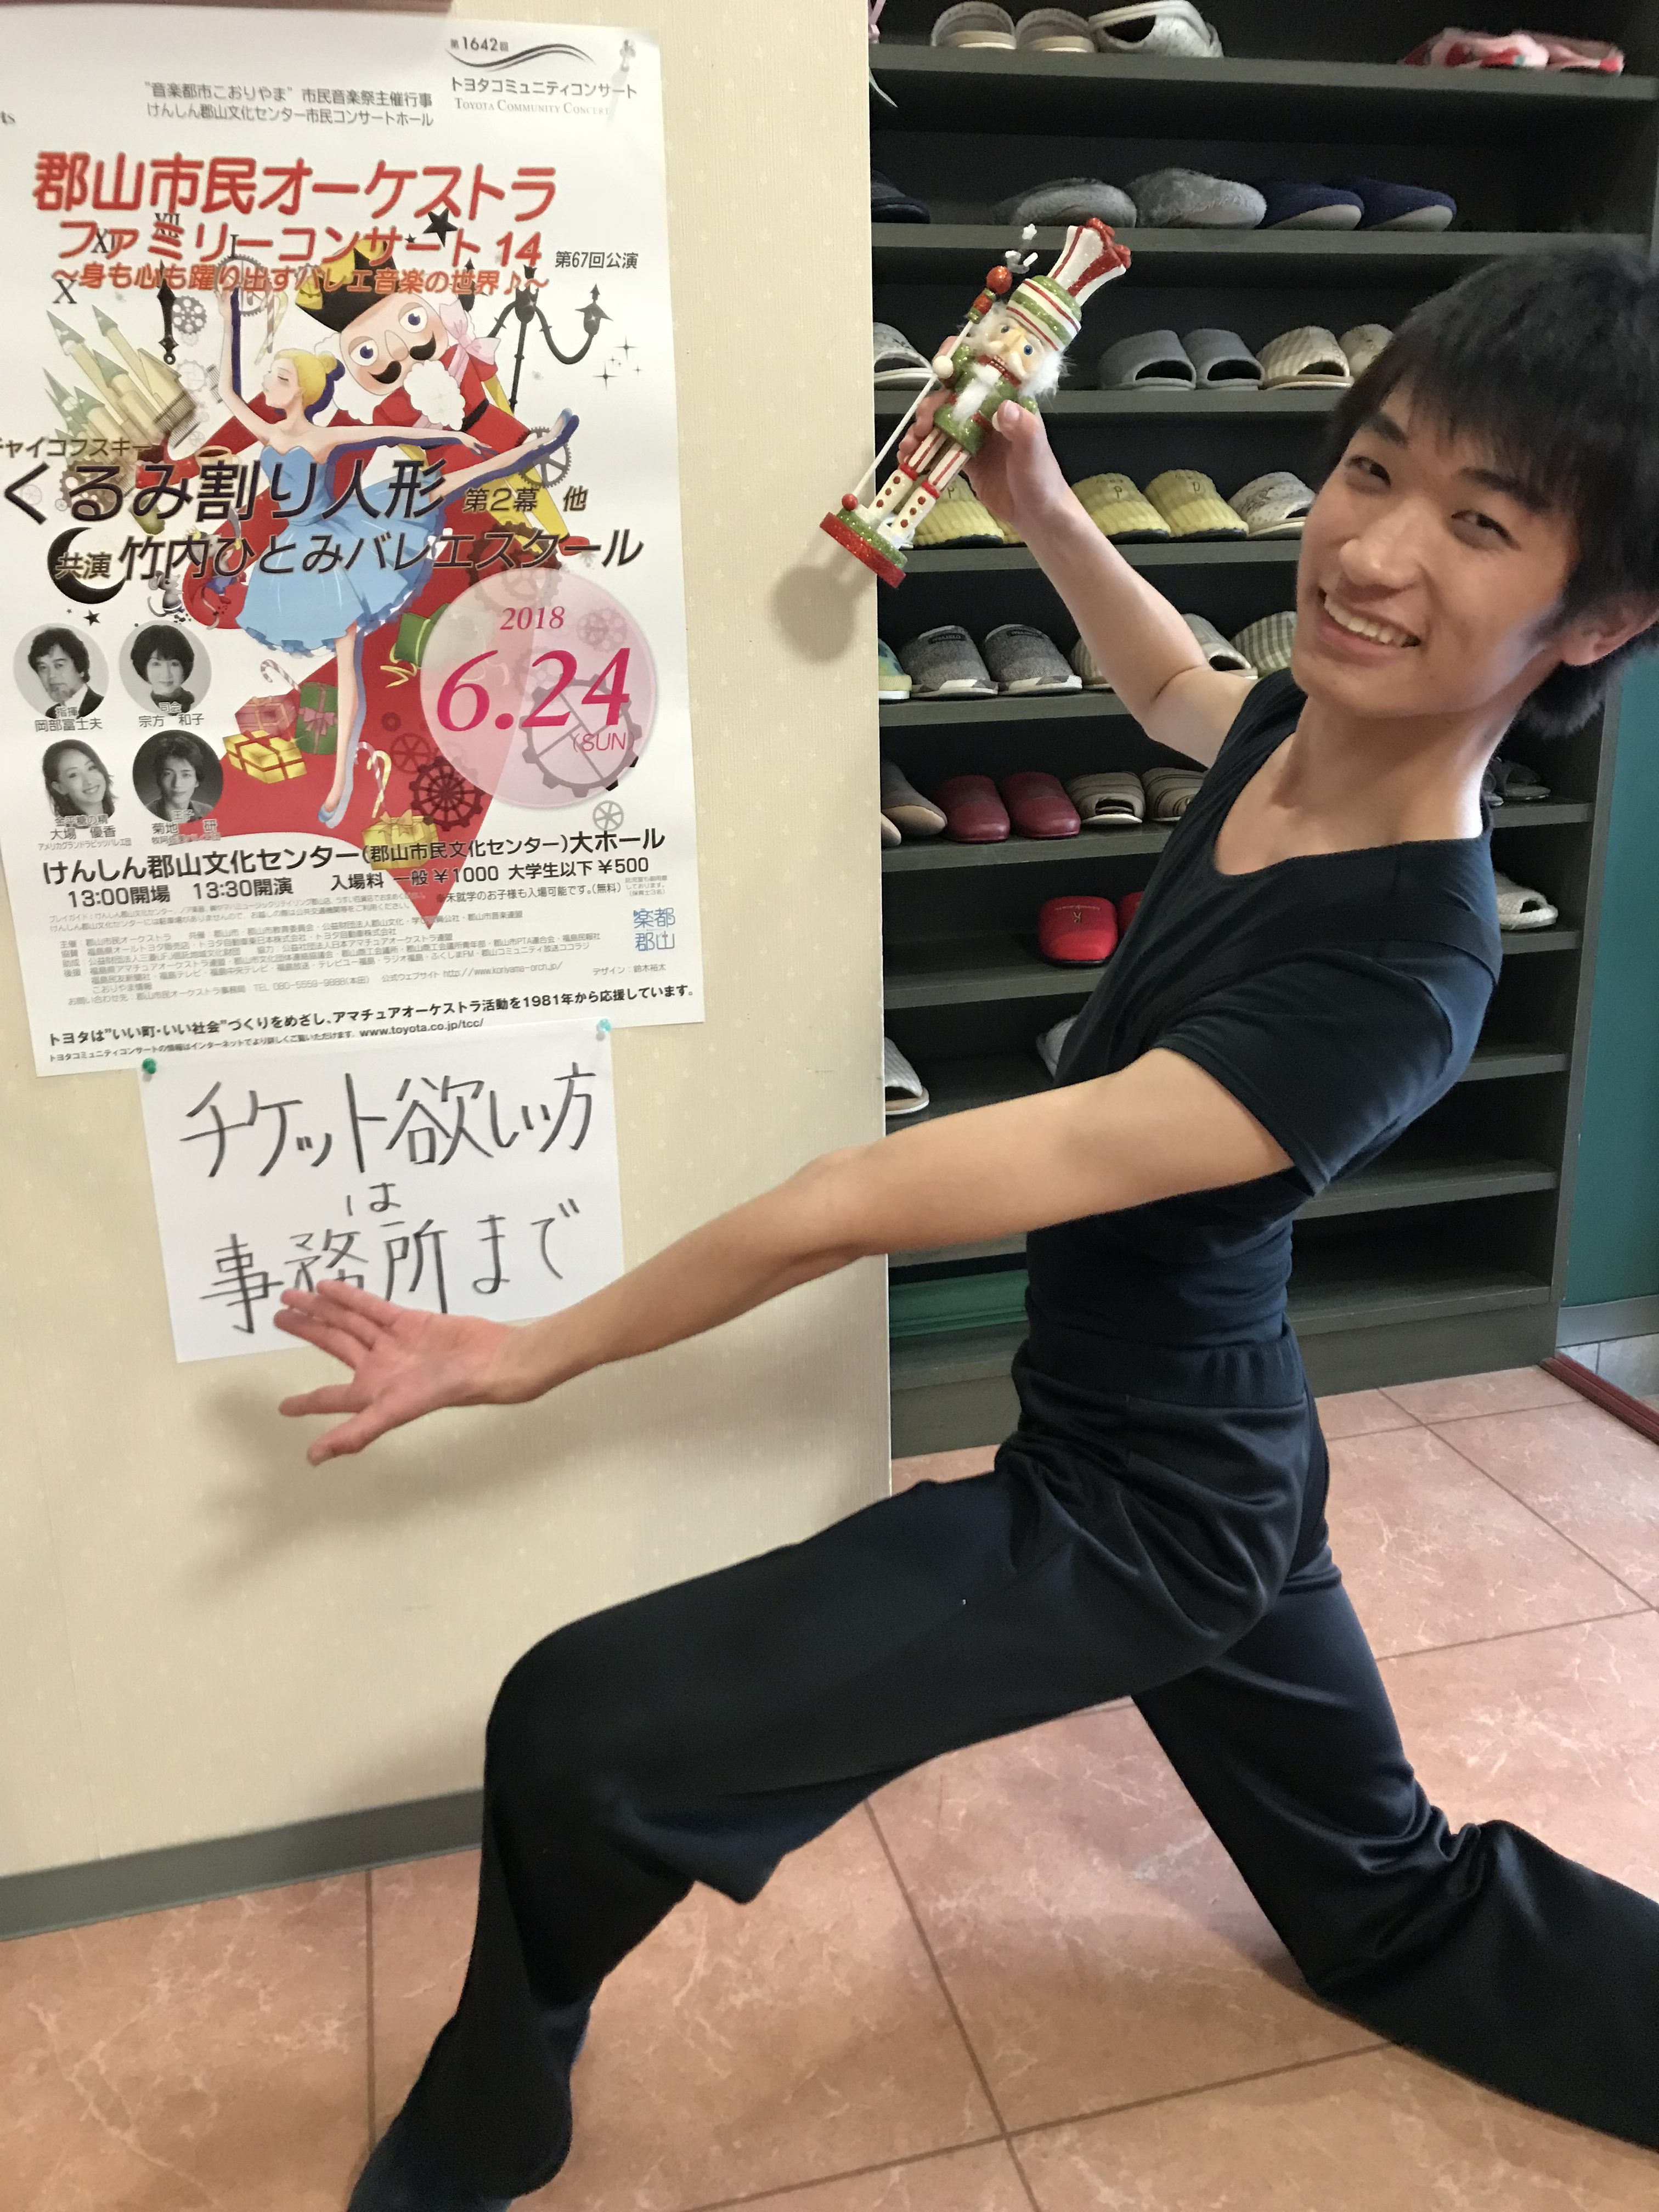 第1642回
トヨタコミュニティコンサート
TOYOTA COMMUNITY CONCERT
"音楽都市こおりやま" 市民音楽祭主催行事
けんしん郡山文化センター市民コンサートホール
郡山市民オーケストラ
ファミリーコンサート14 第67回公演
～身も心も躍り出すバレエ音楽の世界♪～
チャイコフスキー
くるみ割り人形 第2幕 他
共演 竹内ひとみバレエスクール
2018
6.24
(SUN)
指揮
岡部富士夫
司会
宗方 和子
大場 優香
王子
菊地 研
けんしん郡山文化センター(郡山市民文化センター)大ホール
13:00開場 13:30開演 入場料 一般 ¥1000 大学生以下 ¥500
未就学のお子様も入場可能です。(無料)
楽都
郡山
主催 郡山市民オーケストラ
公式ウェブサイト http://www.koriyama-orch.jp/
デザイン：鈴木裕太
お問い合わせ先：郡山市民オーケストラ事務局 TEL 080-5559-9888(本田)
トヨタは"いい町・いい社会"づくりをめざし、アマチュアオーケストラ活動を1981年から応援しています。
トヨタコミュニティコンサートの情報はインターネットでより詳しくご覧いただけます。www.toyota.co.jp/tcc/
チケット欲しい方
は
事務所まで